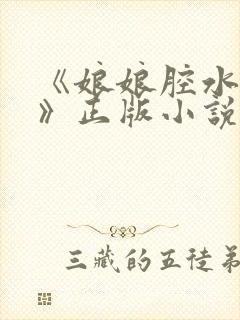 《娘娘腔水
》正版小說
三藏的五徒弟